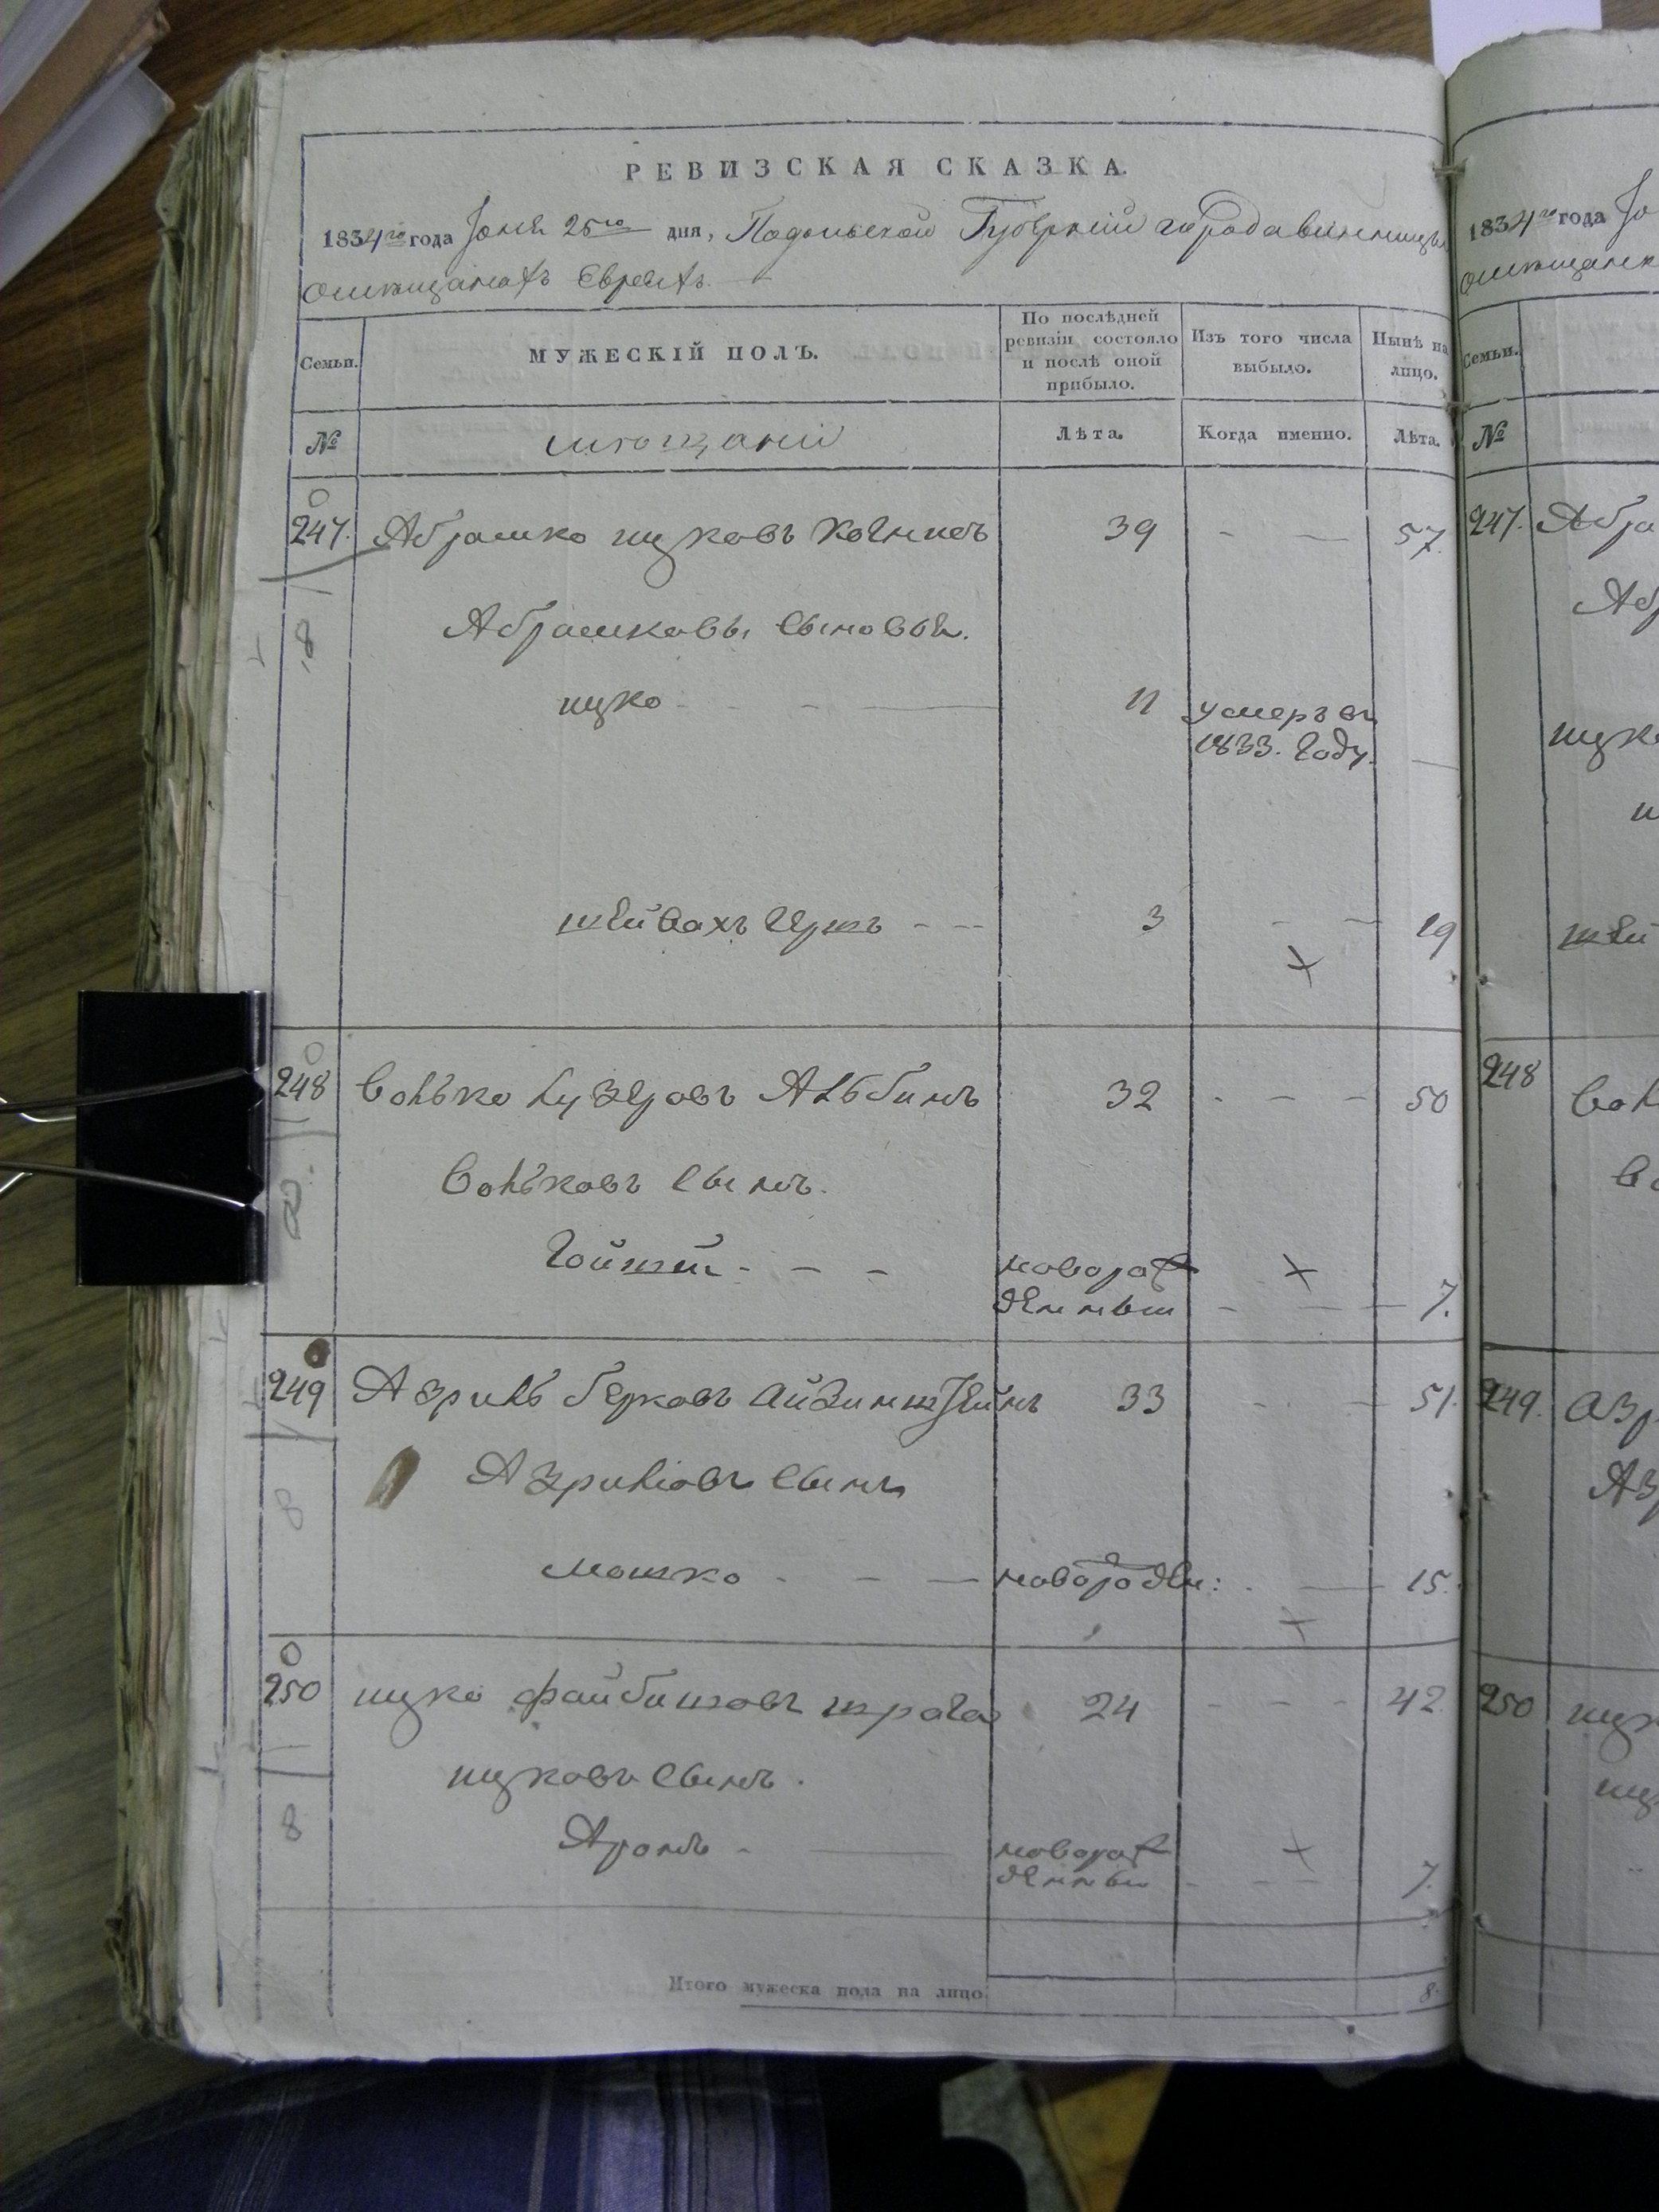 РЕВИЗСКАЯ СКАЗКА.
1834го года Іюня 25го дня, Подольской Губерніи города винницы
омещанахъ Евреяхъ.
Семьи.
МУЖЕСКІЙ ПОЛЪ.
По послѣдней
ревизіи состояло
и послѣ оной
прибыло.
Изъ того числа
выбыло.
Нынѣ на
лицо.
№
мещани
Лѣта.
Когда именно.
Лѣта.
247. Абрашко ицковъ 39 - — 57.
Абрашковы сыновья.
ицко - - — 11 умеръ въ
1833. году. —
шейвахъ Гершъ - - 3 - — 19
248 Волько Лузеровъ Альбинъ 32 - - - 50
Вольковъ сынъ.
- - - новорож
денный - — — 7.
249 Азриль берковъ айзинштейнъ 33 - - 51.
Азриліовъ сынъ
мошко - - — новорожден: - — 15.
250 ицко файбишовъ 24 - - - 42
ицковъ сынъ.
Аронъ - — новорож
денны - - - 7.
Итого мужеска пола на лицо 8.
1834го года
Семьи.
№
247.
248
249.
250